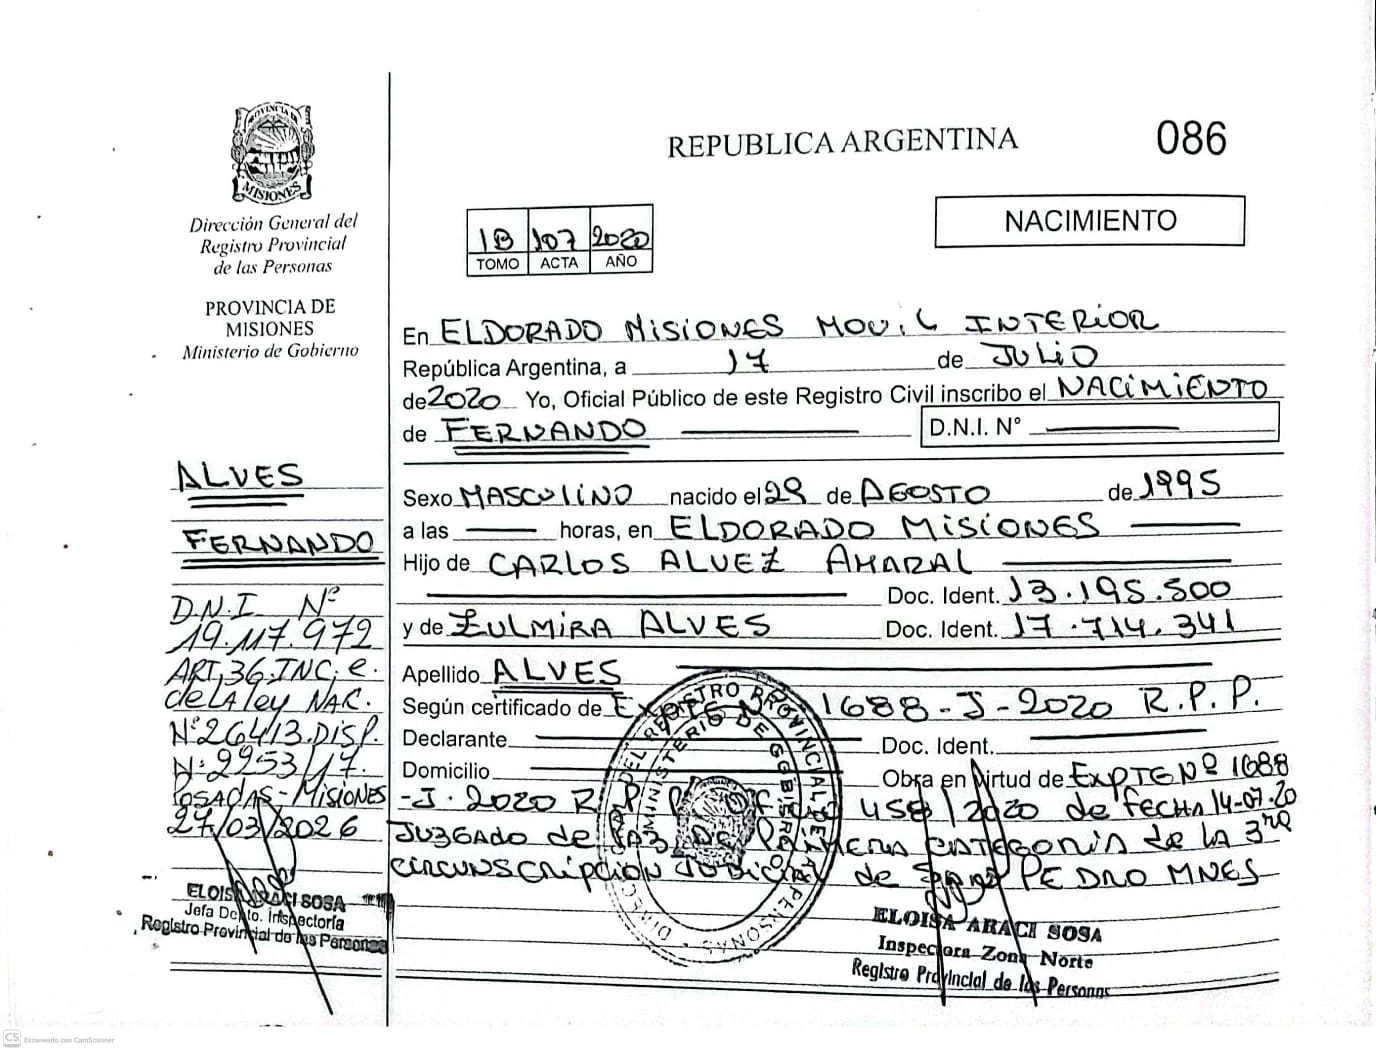 PROVINCIA DE
MISIONES
Dirección General del
Registro Provincial
de las Personas
PROVINCIA DE
MISIONES
Ministerio de Gobierno
REPUBLICA ARGENTINA
086
NACIMIENTO
1B 107 2020
TOMO ACTA AÑO
En ELDORADO MISIONES MOVIL INTERIOR
República Argentina, a 17 de JULIO
de 2020 Yo, Oficial Público de este Registro Civil inscribo el NACIMIENTO
de FERNANDO D.N.I. N°
Sexo MASCULINO nacido el 29 de AGOSTO de 1995
a las horas, en ELDORADO MISIONES
Hijo de CARLOS ALVEZ AMARAL
Doc. Ident. 13.195.500
y de ZULMIRA ALVES Doc. Ident. 17.714.341
Apellido ALVES
Según certificado de EXPTE Nº 1688-J-2020 R.P.P.
Declarante Doc. Ident.
Domicilio Obra en Virtud de EXPTE Nº 1688
-J-2020 R.P.P. 458/2020 de fecha 14-07-20
JUZGADO de PAZ DE PRIMERA CATEGORIA de LA 3ra
CIRCUNSCRIPCION JUDICIAL de SAN PEDRO MNES
ELOISA ARACI SOSA
Inspectora Zona Norte
Registro Provincial de las Personas
DIRECCION DEL REGISTRO PROVINCIAL DE LAS PERSONAS
MINISTERIO DE GOBIERNO
ALVES
FERNANDO
D.N.I Nº
19.117.972
ART,36,INC.e.
de LA ley NAC.
Nº26413.DISP.
Nº2953/17.
POSADAS-MISIONES
27/03/2026
ELOISA ARACI SOSA
Jefa Depto. Inspectoría
Registro Provincial de las Personas
CS Escaneado con CamScanner